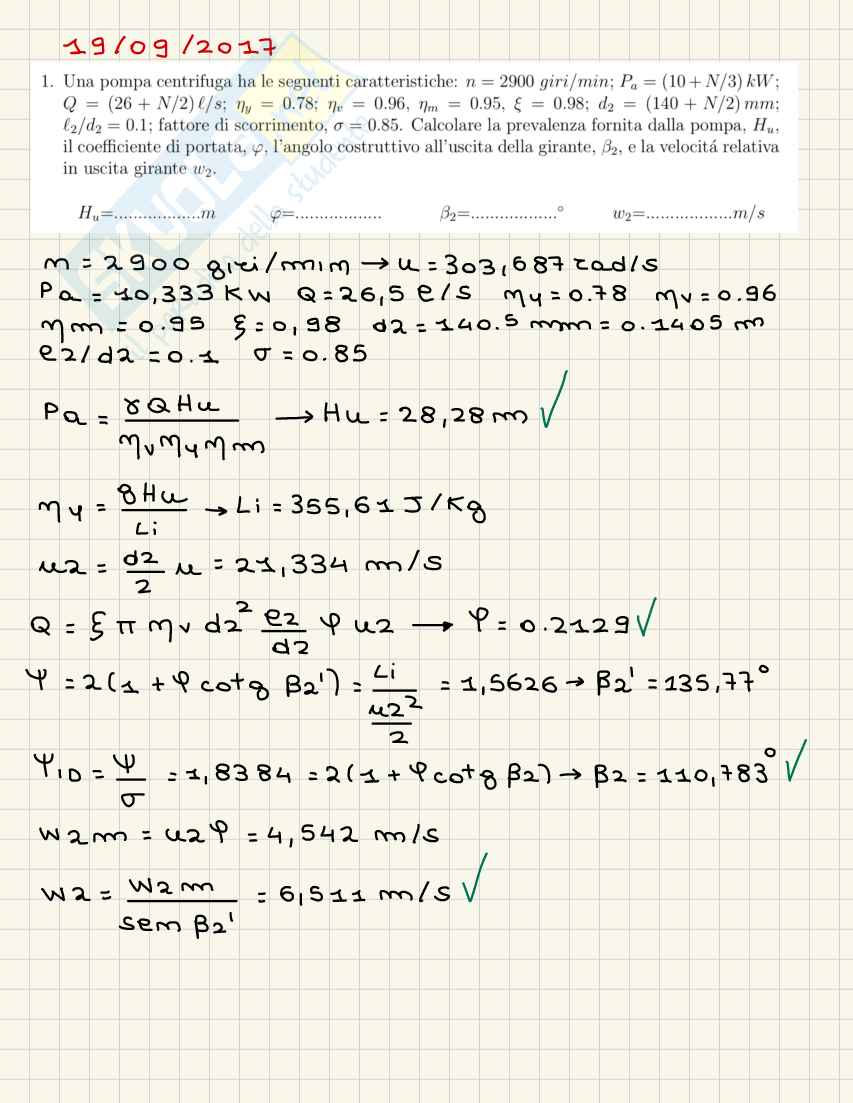 19/09/2017
1. Una pompa centrifuga ha le seguenti caratteristiche: n = 2900 giri/min; Pa = (10 + N/3) kW;
Q = (26 + N/2) ℓ/s; ηy = 0.78; ηv = 0.96, ηm = 0.95, ξ = 0.98; d2 = (140 + N/2) mm;
ℓ2/d2 = 0.1; fattore di scorrimento, σ = 0.85. Calcolare la prevalenza fornita dalla pompa, Hu,
il coefficiente di portata, φ, l'angolo costruttivo all'uscita della girante, β2, e la velocitá relativa
in uscita girante w2.
Hu=..................m φ=.................. β2=..................° w2=..................m/s
n = 2900 giri/min → u = 303,687 rad/s
Pa = 10,333 KW Q = 26,5 e/s ηy = 0.78 ηv = 0.96
ηm = 0.95 ξ = 0,98 d2 = 140.5 mm = 0.1405 m
e2/d2 = 0.1 σ = 0.85
Pa = γQHu / ηvηyηm → Hu = 28,28 m ✓
ηy = gHu / Li → Li = 355,61 J/Kg
u2 = d2/2 u = 21,334 m/s
Q = ξ π ηv d2² e2/d2 φ u2 → φ = 0.2129 ✓
ψ = 2(1 + φ cotg β2') = Li / (u2²/2) = 1,5626 → β2' = 135,77°
ψID = ψ/σ = 1,8384 = 2(1 + φ cotg β2) → β2 = 110,783° ✓
W2m = u2φ = 4,542 m/s
W2 = W2m / sen β2' = 6,511 m/s ✓
SKUOLA.NET
il paradiso dello studente